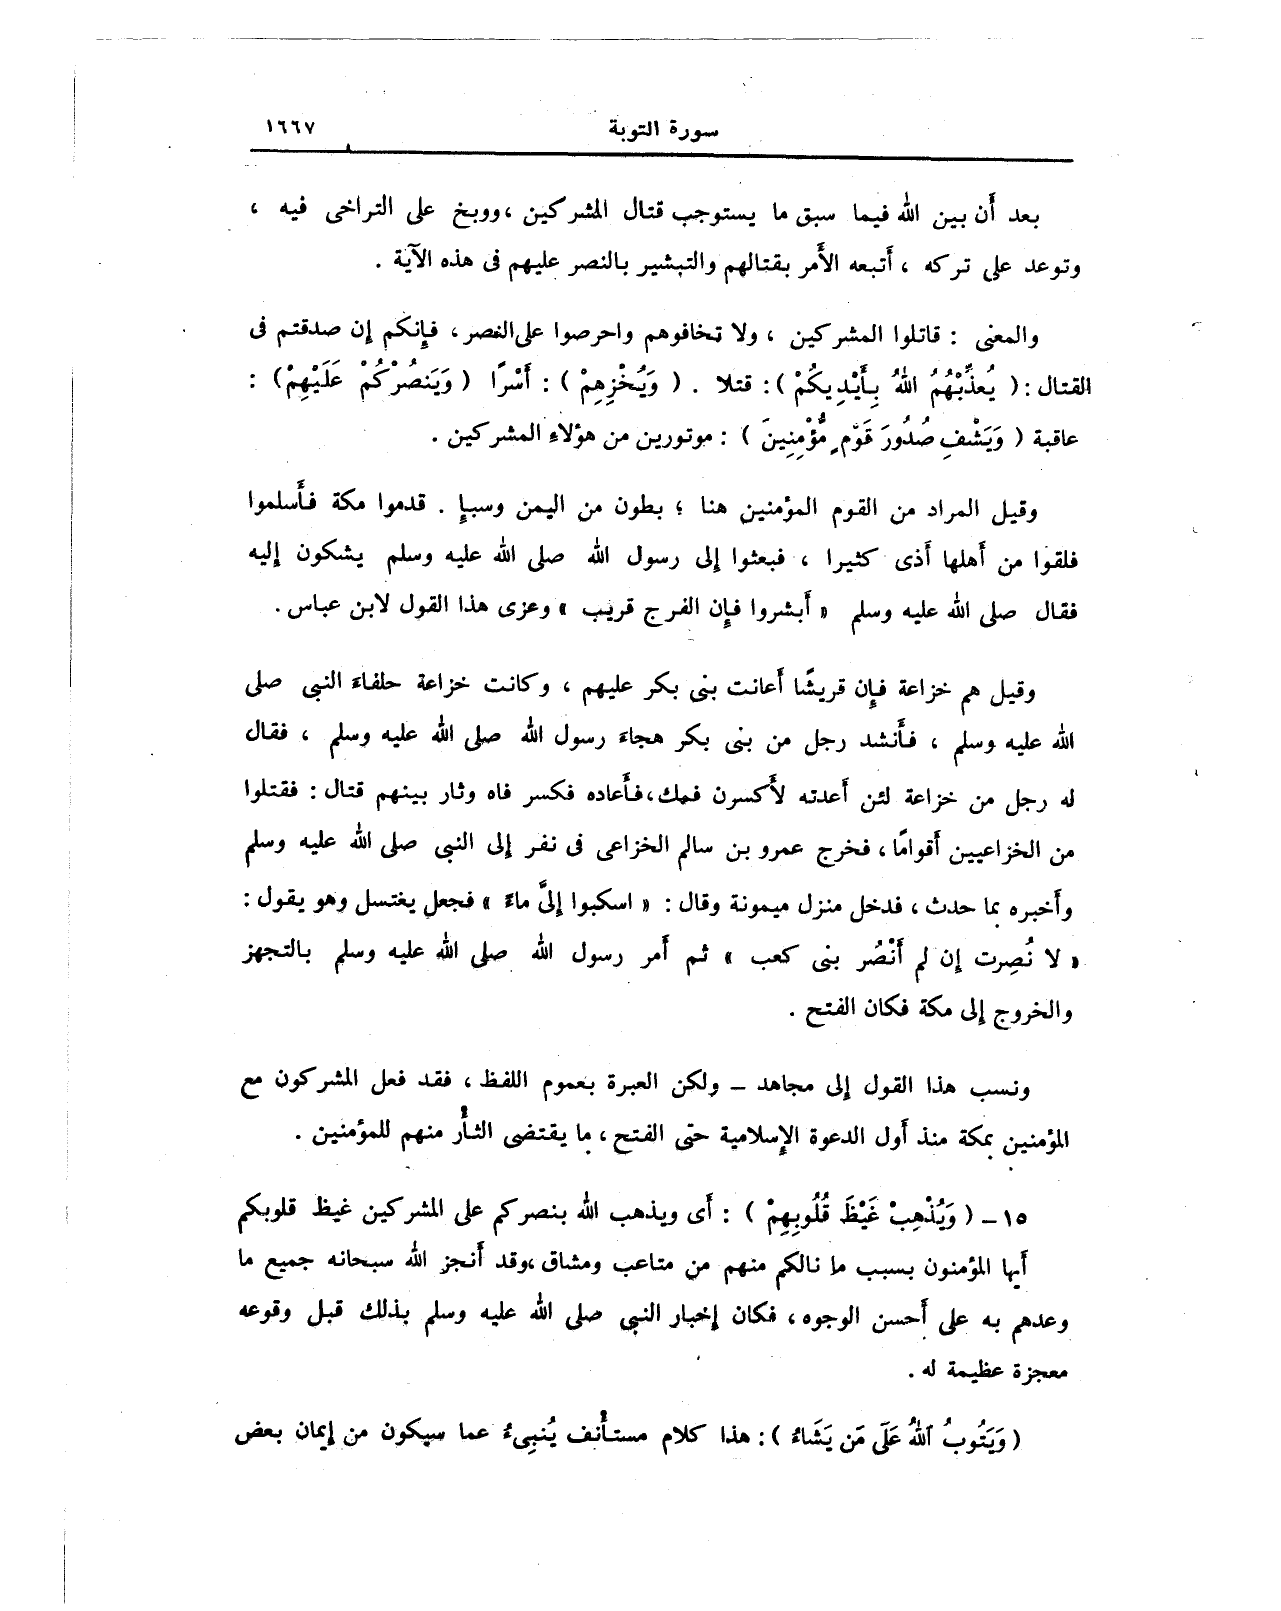 سورة التوبة ١٦٦٧
بعد أن بين الله فيما سبق ما يستوجب قتال المشركين ، ووبخ على التراخى فيه ،
وتوعد على تركه ، أتبعه الأمر بقتالهم والتبشير بالنصر عليهم فى هذه الآية .
والمعنى : قاتلوا المشركين ، ولا تخافوهم واحرصوا على النصر ، فإنكم إن صدقتم فى
القتال : ( يُعذِّبْهُمُ اللهُ بِأَيْدِيكُمْ ) : قتلا . ( وَيُخْزِهِمْ ) : أَسْرًا ( وَيَنصُرْكُمْ عَلَيْهِمْ ) :
عاقبة ( وَيَشْفِ صُدُورَ قَوْمٍ مُّؤْمِنِينَ ) : موتورين من هؤلاءِ المشركين .
وقيل المراد من القوم المؤمنين هنا ؛ بطون من اليمن وسبإ . قدموا مكة فأَسلموا
فلقوا من أهلها أذى كثيرا ، فبعثوا إلى رسول الله صلى الله عليه وسلم يشكون إليه
فقال صلى الله عليه وسلم « أبشروا فإن الفرج قريب » وعزى هذا القول لابن عباس .
وقيل هم خزاعة فإن قريشًا أعانت بنى بكر عليهم ، وكانت خزاعة حلفاءَ النبى صلى
الله عليه وسلم ، فأَنشد رجل من بنى بكر هجاءَ رسول الله صلى الله عليه وسلم ، فقال
له رجل من خزاعة لئن أعدته لأَكسرن فمك ، فأَعاده فكسر فاه وثار بينهم قتال : فقتلوا
من الخزاعيين أقوامًا ، فخرج عمرو بن سالم الخزاعى فى نفر إلى النبى صلى الله عليه وسلم
وأخبره بما حدث ، فدخل منزل ميمونة وقال : « اسكبوا إلىَّ ماءً » فجعل يغتسل وهو يقول :
« لا نُصِرت إن لم أَنْصُر بنى كعب » ثم أمر رسول الله صلى الله عليه وسلم بالتجهز
والخروج إلى مكة فكان الفتح .
ونسب هذا القول إلى مجاهد – ولكن العبرة بعموم اللفظ ، فقد فعل المشركون مع
المؤمنين بمكة منذ أول الدعوة الإسلامية حتى الفتح ، ما يقتضى الثأر منهم للمؤمنين .
١٥ – ( وَيُذْهِبْ غَيْظَ قُلُوبِهِمْ ) : أى ويذهب الله بنصركم على المشركين غيظ قلوبكم
أيها المؤمنون بسبب ما نالكم منهم من متاعب ومشاق ، وقد أنجز الله سبحانه جميع ما
وعدهم به على أحسن الوجوه ، فكان إخبار النبى صلى الله عليه وسلم بذلك قبل وقوعه
معجزة عظيمة له .
( وَيَتُوبُ ٱللهُ عَلَى مَن يَشَاءُ ) : هذا كلام مستأنف يُنبِىءُ عما سيكون من إيمان بعض